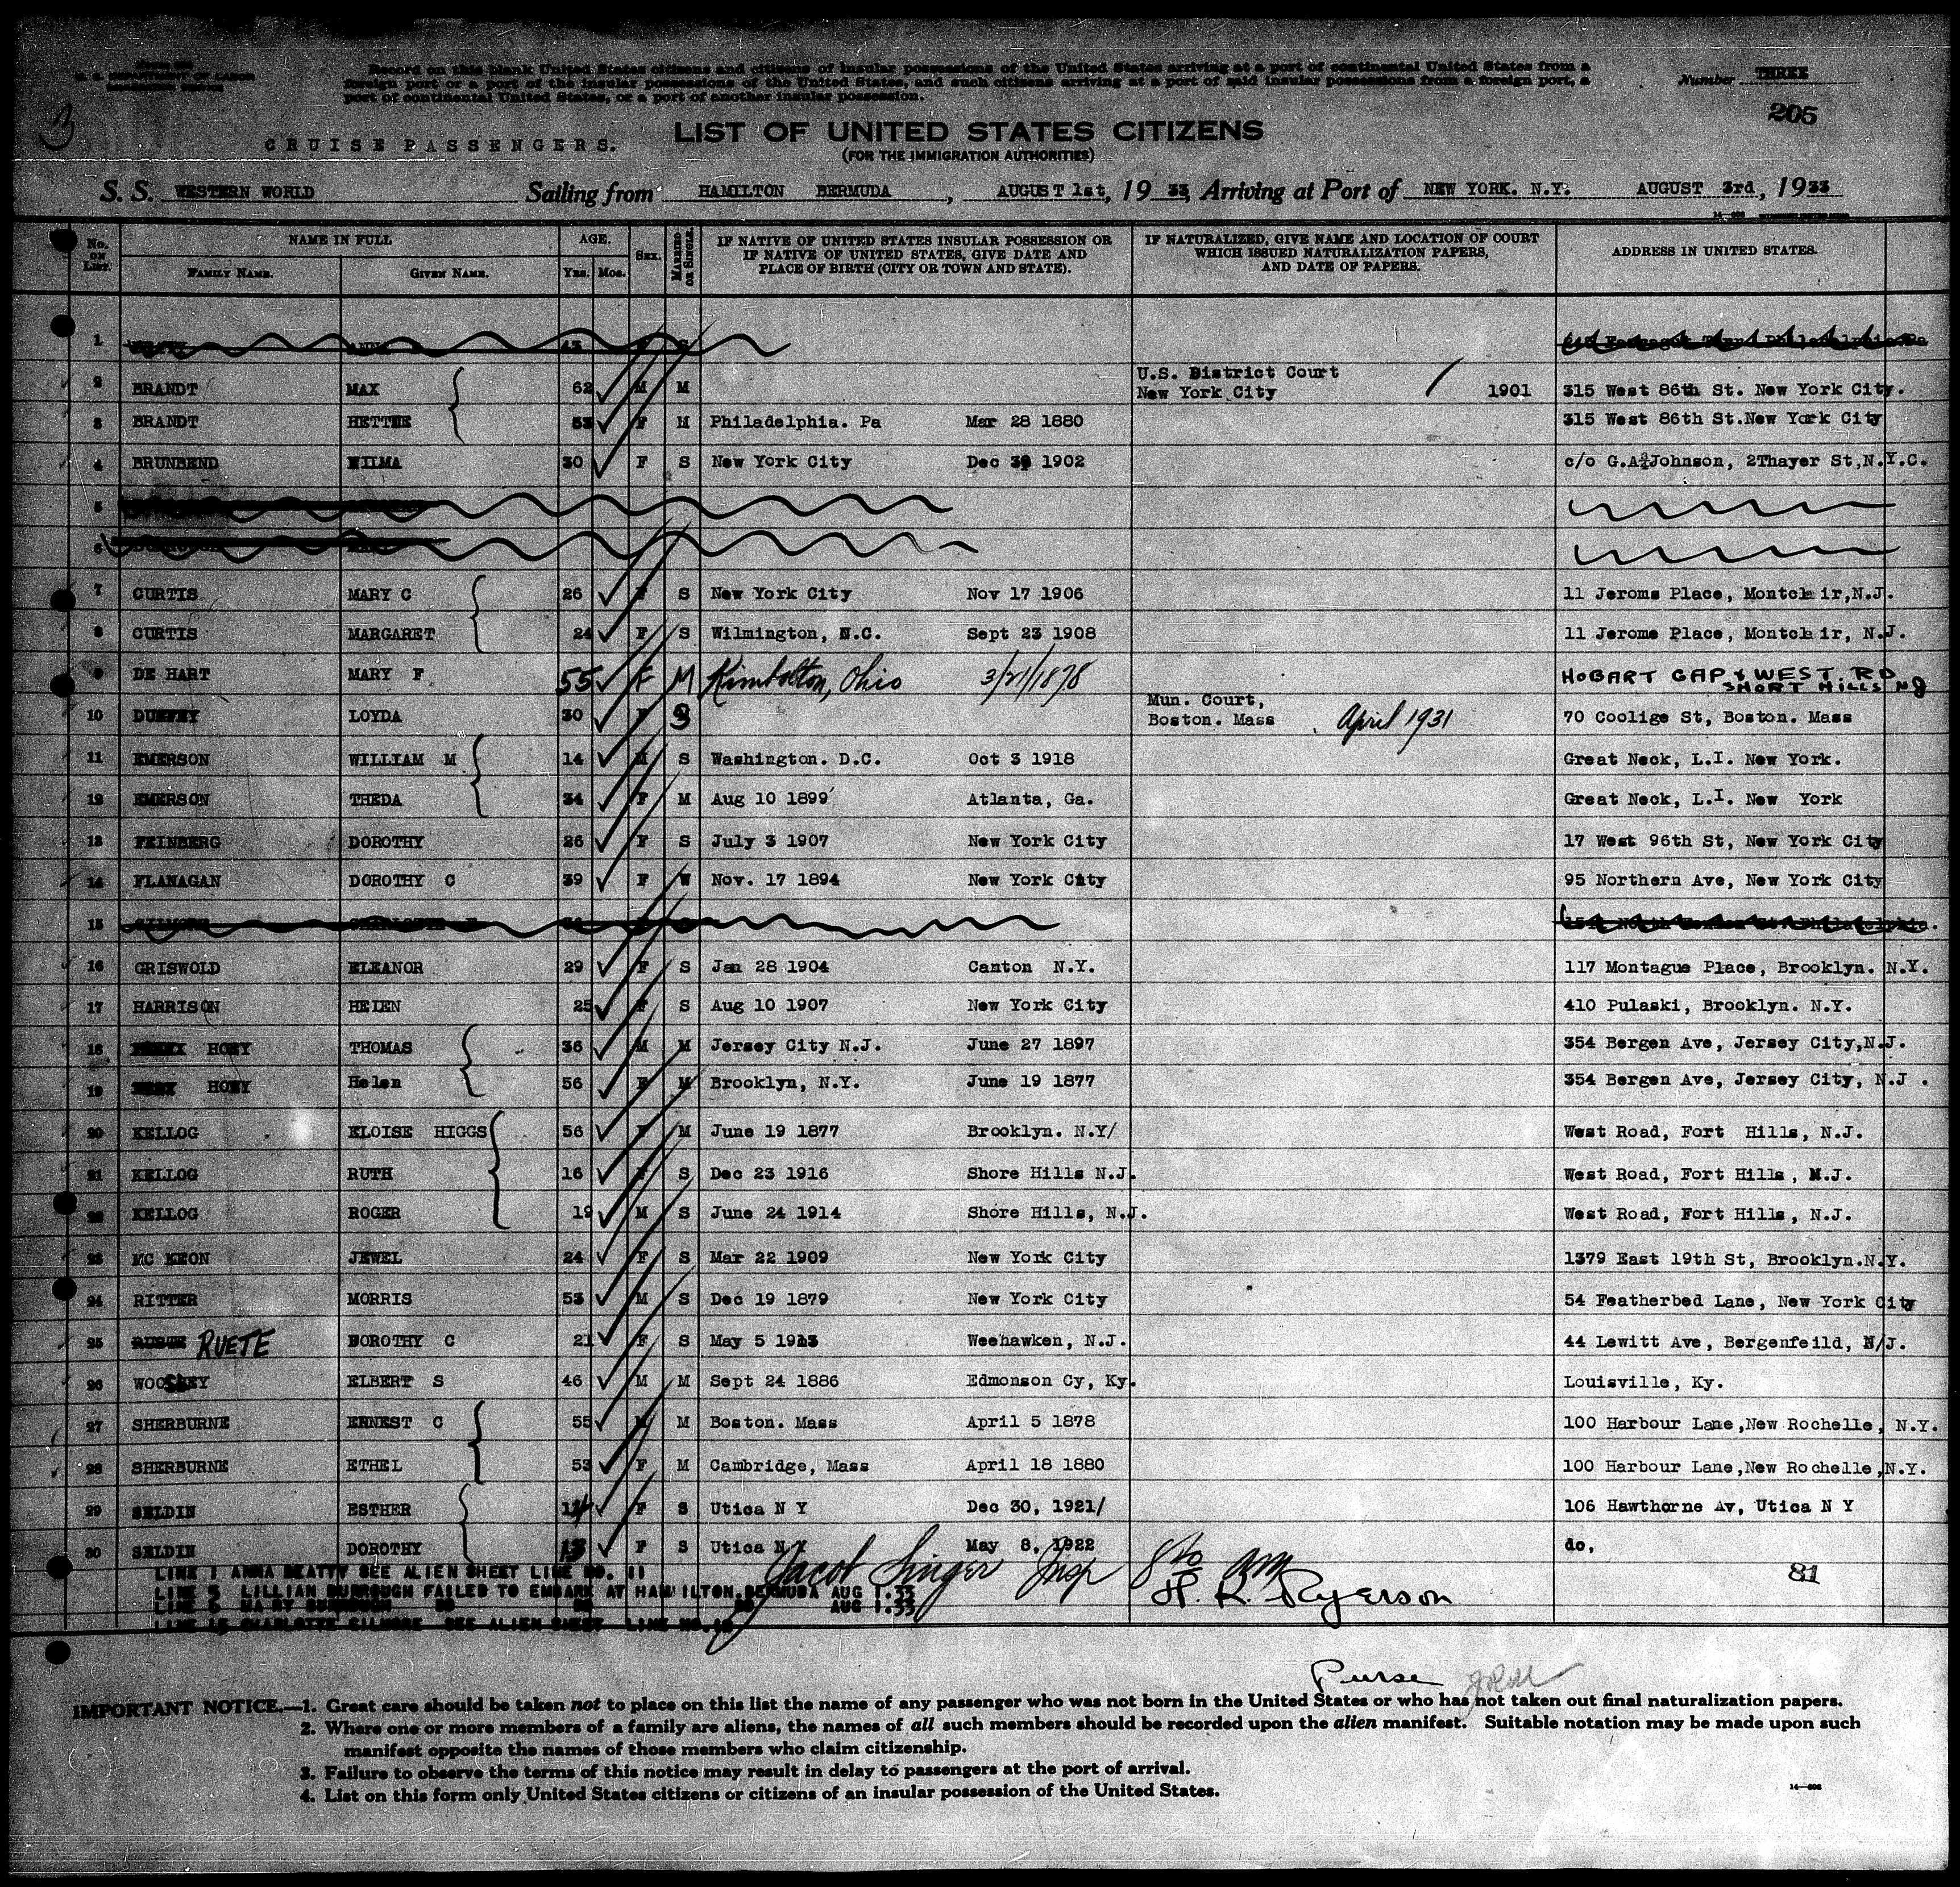 U. S. DEPARTMENT OF LABOR
Record on this blank United States citizens and citizens of insular possessions of the United States arriving at a port of continental United States from a
foreign port or a port of the insular possessions of the United States, and such citizens arriving at a port of said insular possessions from a foreign port, a
port of continental United States, or a port of another insular possession.
Number THREE
3
205
CRUISE PASSENGERS.
LIST OF UNITED STATES CITIZENS
(FOR THE IMMIGRATION AUTHORITIES)
S. S. WESTERN WORLD Sailing from HAMILTON BERMUDA, AUGUST 1st, 19 33, Arriving at Port of NEW YORK. N.Y. AUGUST 3rd, 1933
No. ON LIST. NAME IN FULL FAMILY NAME. GIVEN NAME. AGE. YRS. MOS. SEX. MARRIED OR SINGLE. IF NATIVE OF UNITED STATES INSULAR POSSESSION OR IF NATIVE OF UNITED STATES, GIVE DATE AND PLACE OF BIRTH (CITY OR TOWN AND STATE). IF NATURALIZED, GIVE NAME AND LOCATION OF COURT WHICH ISSUED NATURALIZATION PAPERS, AND DATE OF PAPERS. ADDRESS IN UNITED STATES.
1
2 BRANDT MAX 62 M M U.S. District Court New York City / 1901 315 West 86th St. New York City.
3 BRANDT HETTIE 53 F M Philadelphia. Pa Mar 28 1880 315 West 86th St.New York City
4 BRUNBEND WILMA 30 F S New York City Dec 30 1902 c/o G.A Johnson, 2Thayer St,N.Y.C.
5
6
7 CURTIS MARY C 26 F S New York City Nov 17 1906 11 Jeroms Place, Montclair,N.J.
8 CURTIS MARGARET 24 F S Wilmington, N.C. Sept 23 1908 11 Jerome Place, Montclair, N.J.
9 DE HART MARY F 55 F M Kimbolton, Ohio 3/21/1878 HOBART GAP & WEST RD SHORT HILLS NJ
10 DUFFEY LOYDA 30 F S Mun. Court, Boston. Mass April 1931 70 Coolige St, Boston. Mass
11 EMERSON WILLIAM M 14 M S Washington. D.C. Oct 3 1918 Great Neck, L.I. New York.
12 EMERSON THEDA 34 F M Aug 10 1899 Atlanta, Ga. Great Neck, L.I. New York
13 FEINBERG DOROTHY 26 F S July 3 1907 New York City 17 West 96th St, New York City
14 FLANAGAN DOROTHY C 39 F W Nov. 17 1894 New York City 95 Northern Ave, New York City
15 GILMORE CHARLOTTE
16 GRISWOLD ELEANOR 29 F S Jan 28 1904 Canton N.Y. 117 Montague Place, Brooklyn. N.Y.
17 HARRISON HELEN 25 F S Aug 10 1907 New York City 410 Pulaski, Brooklyn. N.Y.
18 HOEY THOMAS 36 M M Jersey City N.J. June 27 1897 354 Bergen Ave, Jersey City,N.J.
19 HOEY Helen 56 F M Brooklyn, N.Y. June 19 1877 354 Bergen Ave, Jersey City, N.J .
20 KELLOG ELOISE HIGGS 56 F M June 19 1877 Brooklyn. N.Y/ West Road, Fort Hills, N.J.
21 KELLOG RUTH 16 F S Dec 23 1916 Shore Hills N.J. West Road, Fort Hills, N.J.
22 KELLOG ROGER 19 M S June 24 1914 Shore Hills, N.J. West Road, Fort Hills, N.J.
23 MC KEON JEWEL 24 F S Mar 22 1909 New York City 1379 East 19th St, Brooklyn.N.Y.
24 RITTER MORRIS 53 M S Dec 19 1879 New York City 54 Featherbed Lane, New York City
25 RUETE DOROTHY C 21 F S May 5 1913 Weehawken, N.J. 44 Lewitt Ave, Bergenfeild, N/J.
26 WOOSLEY ELBERT S 46 M M Sept 24 1886 Edmonson Cy, Ky. Louisville, Ky.
27 SHERBURNE ERNEST C 55 M M Boston. Mass April 5 1878 100 Harbour Lane,New Rochelle, N.Y.
28 SHERBURNE ETHEL 53 F M Cambridge, Mass April 18 1880 100 Harbour Lane,New Rochelle,N.Y.
29 SELDIN ESTHER 11 F S Utica N Y Dec 30, 1921/ 106 Hawthorne Av, Utica N Y
30 SELDIN DOROTHY F S Utica N Y May 8, 1922 do,
LINE 1 ANNA BEATTY SEE ALIEN SHEET LINE NO. 11
LINE 5 LILLIAN BURROUGH FAILED TO EMBARK AT HAMILTON, BERMUDA AUG 1.33
LINE 6 MARY BURROUGH DO DO DO AUG 1.33
LINE 15 CHARLOTTE GILMORE SEE ALIEN SHEET LINE NO.
Jacob Singer Insp 8 am
81
H. R. Ryerson
Purse
IMPORTANT NOTICE.—1. Great care should be taken not to place on this list the name of any passenger who was not born in the United States or who has not taken out final naturalization papers.
2. Where one or more members of a family are aliens, the names of all such members should be recorded upon the alien manifest. Suitable notation may be made upon such
manifest opposite the names of those members who claim citizenship.
3. Failure to observe the terms of this notice may result in delay to passengers at the port of arrival.
4. List on this form only United States citizens or citizens of an insular possession of the United States.